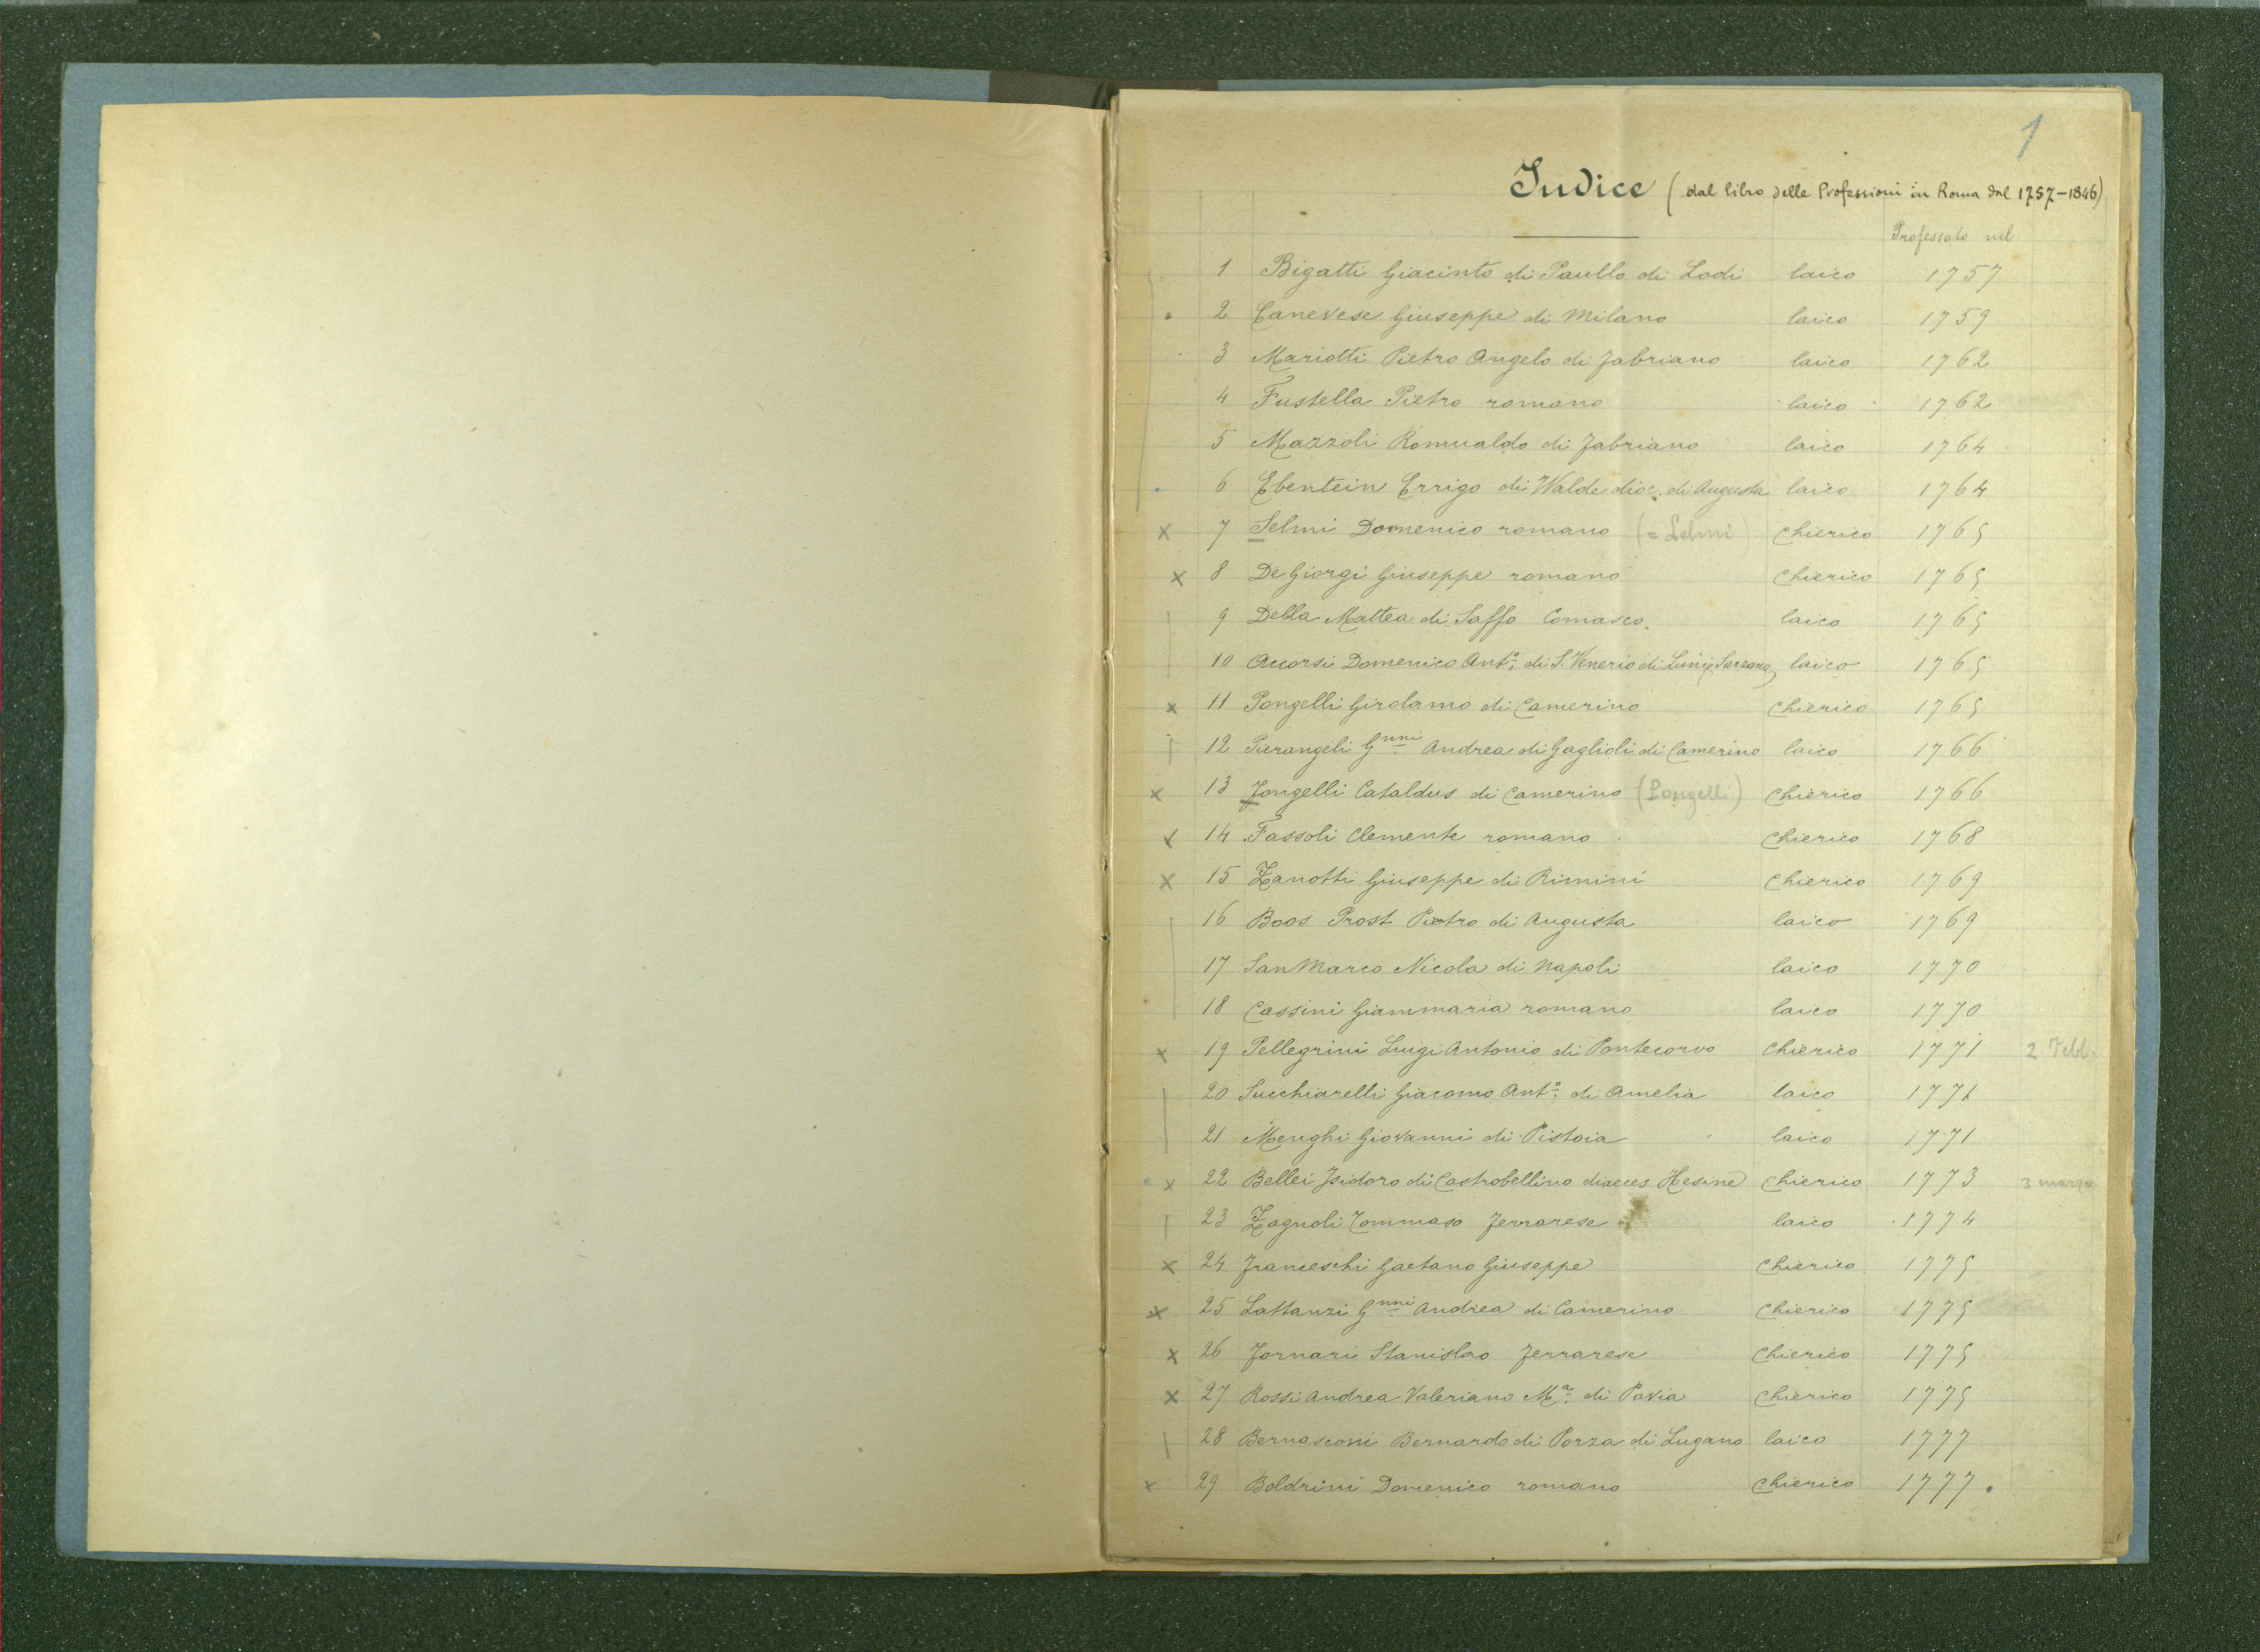 1
Indice (dal libro delle Professioni in Roma dal 1757-1846)
Professato nel
1 Bigatti Giacinto di Paullo di Lodi laico 1757
2 Canevese Giuseppe di Milano laico 1759
3 Mariotti Pietro Angelo di Fabriano laico 1762
4 Fustella Pietro romano laico 1762
5 Mazzoli Romualdo di Fabriano laico 1764
6 Ebentein Errigo di Walde dioc. di Augusta laico 1764
x 7 Selmi Domenico romano (= Lelmi) Chierico 1765
x 8 De Giorgi Giuseppe romano Chierico 1765
9 Della Mattea di Saffo Comasco. laico 1765
10 Accorsi Domenico Ant.o di S. Venerio di Luni laico 1765
x 11 Pongelli Girolamo di Camerino Chierico 1765
12 Pierangeli Gnni Andrea di Gaglioli di Camerino laico 1766
x 13 Jongelli Cataldus di Camerino (Pongelli) Chierico 1766
x 14 Fassoli Clemente romano Chierico 1768
x 15 Zanotti Giuseppe di Rimini Chierico 1769
16 Boos Prost Pietro di Augusta laico 1769
17 San Marco Nicola di Napoli laico 1770
18 Cassini Giammaria romano laico 1770
x 19 Pellegrini Luigi Antonio di Pontecorvo Chierico 1771 2. Febb.
20 Succhiarelli Giacomo Ant.o di Amelia laico 1771
21 Menghi Giovanni di Pistoia laico 1771
x 22 Bellei Isidoro di Castrobellino dioeces Hesine Chierico 1773 3 marzo
23 Zagnoli Tommaso Ferrarese laico 1774
x 24 Franceschi Gaetano Giuseppe Chierico 1775
x 25 Lattanzi Gnni Andrea di Camerino Chierico 1775
x 26 Fornari Stanislao Ferrarese Chierico 1775
x 27 Rossi Andrea Valeriano M.a di Pavia Chierico 1775
28 Bernasconi Bernardo di Porza di Lugano laico 1777
x 29 Boldrini Domenico romano Chierico 1777.